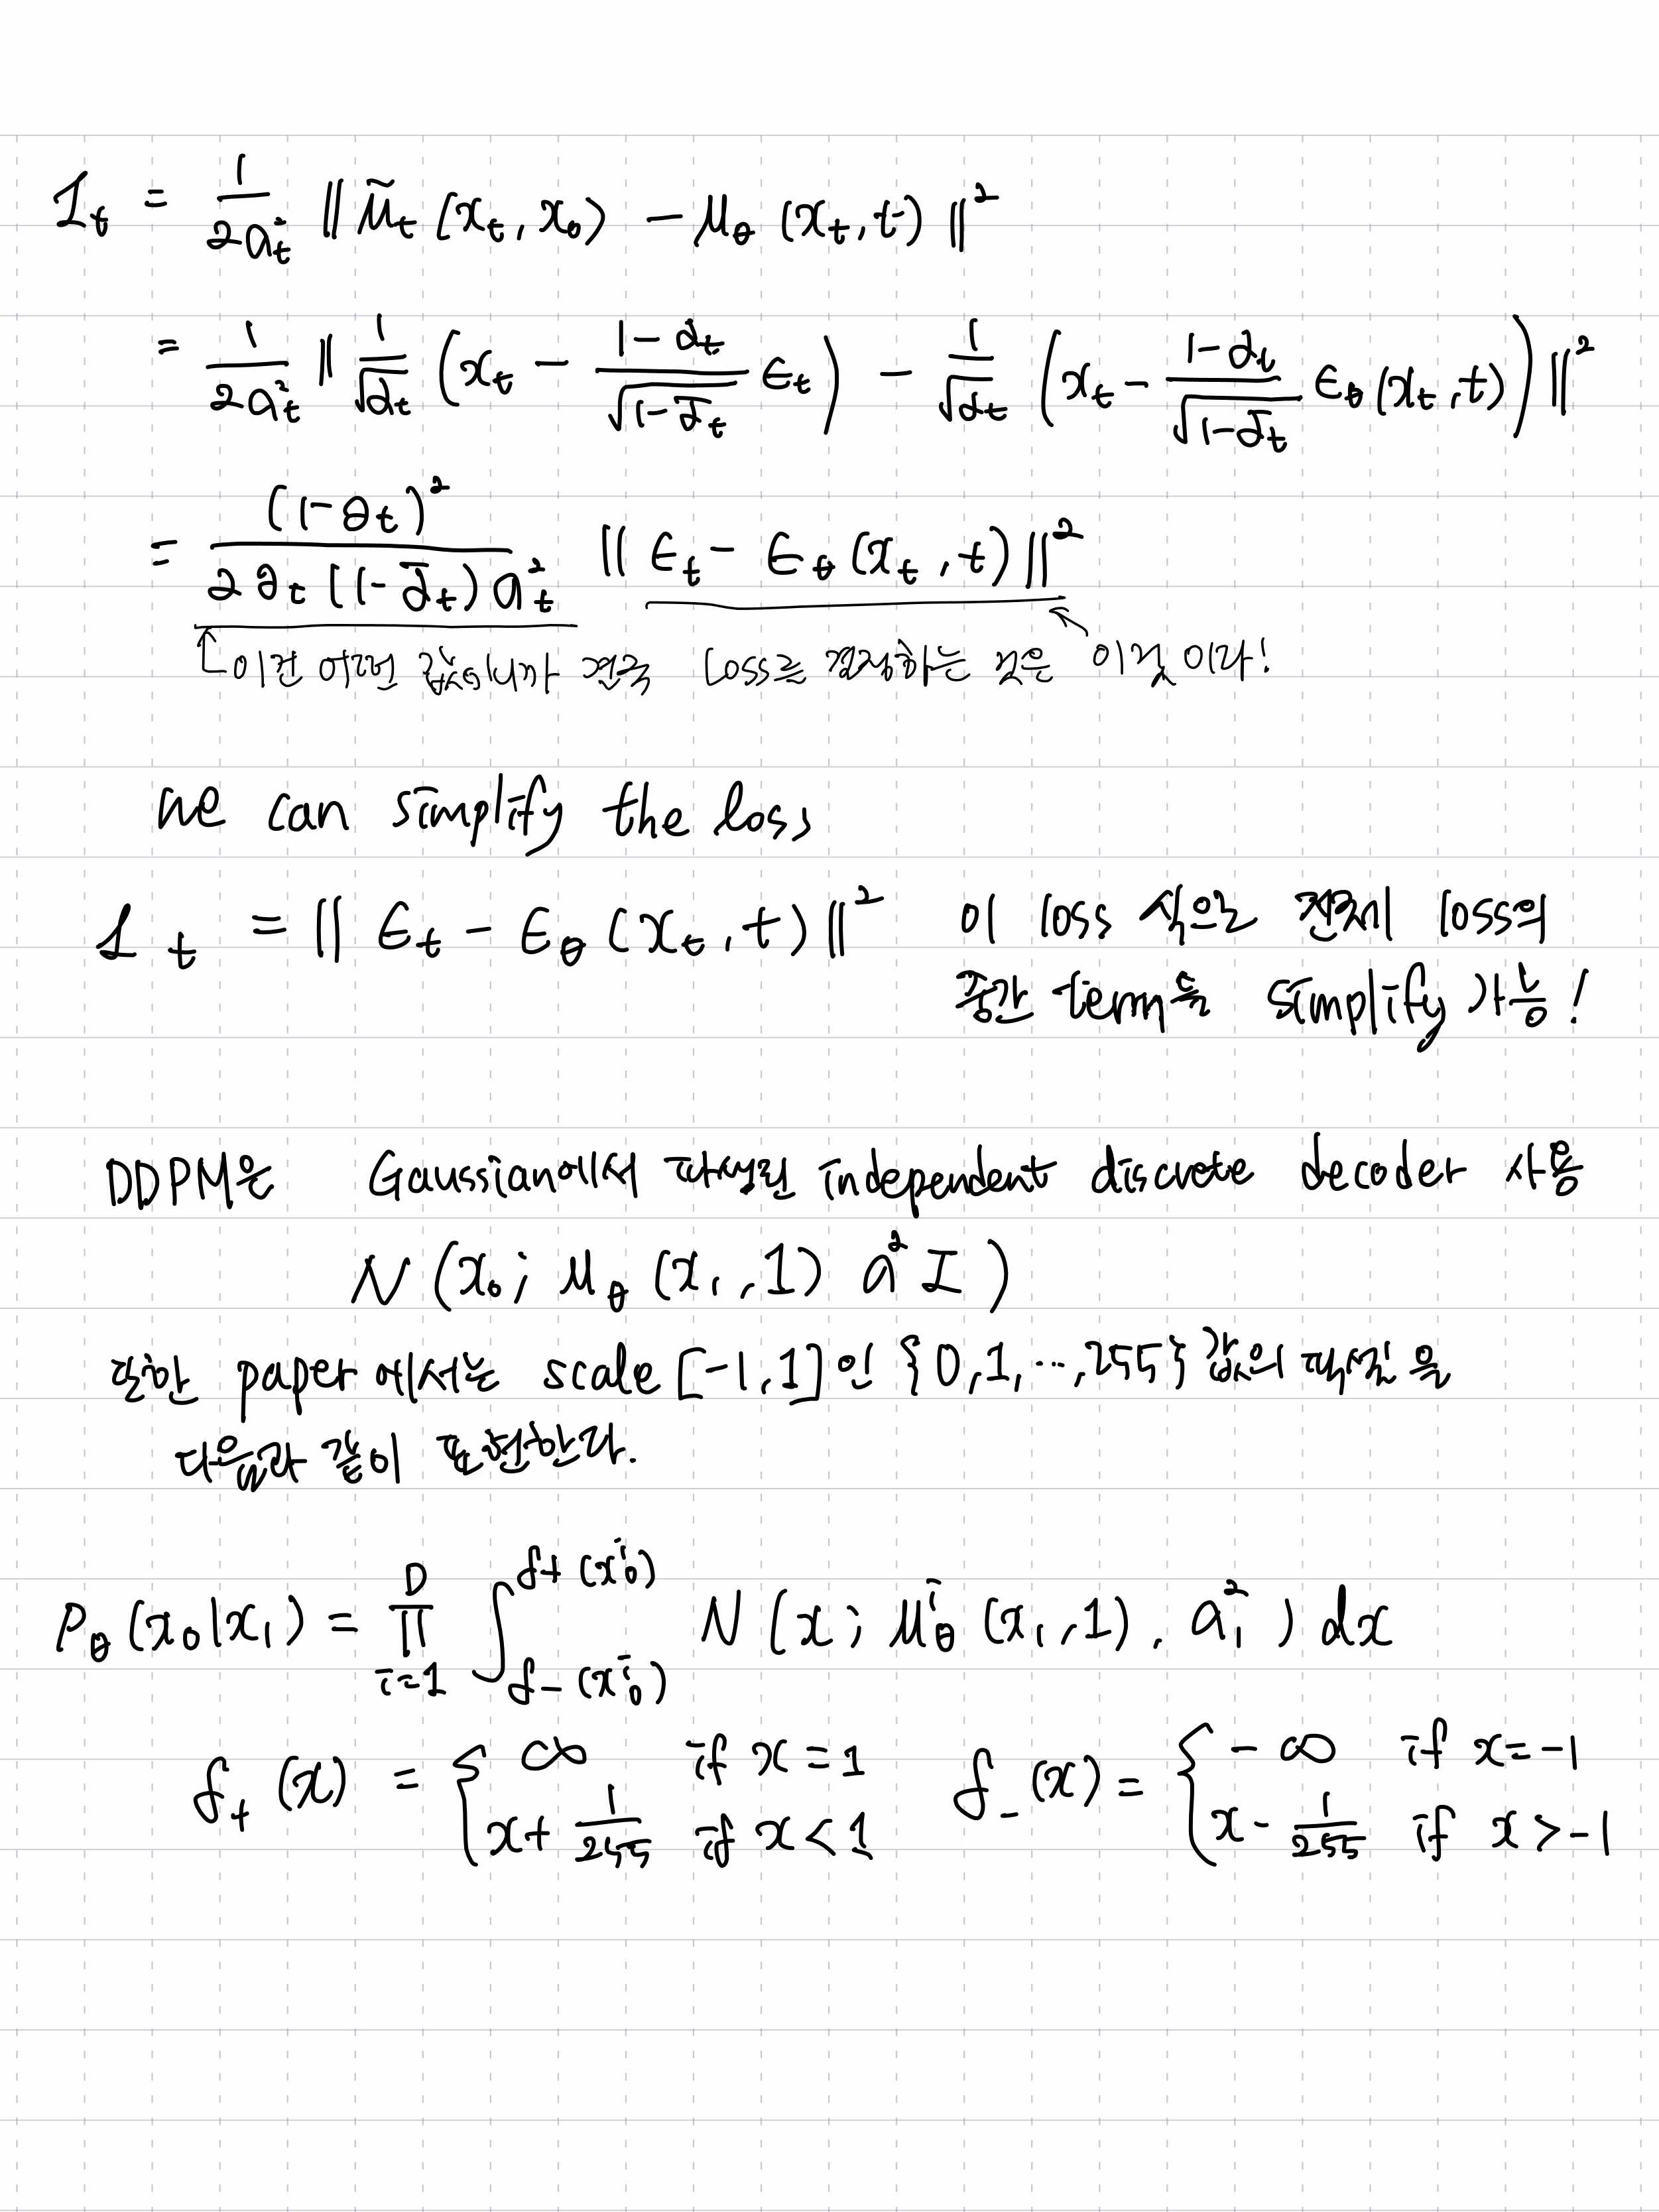 1_t = \frac{1}{2a_t^2} ‖ μ̃_t (x_t, x_0) − μ_θ (x_t, t) ‖²
= \frac{1}{2a_t^2} ‖ \frac{1}{\sqrt{α_t}} (x_t − \frac{1-α_t}{\sqrt{1-\bar{α}_t}} ε_t) − \frac{1}{\sqrt{α_t}} (x_t − \frac{1-α_t}{\sqrt{1-\bar{α}_t}} ε_θ (x_t, t)) ‖²
= \frac{(1-α_t)^2}{2α_t (1-\bar{α}_t) a_t^2} ‖ ε_t − ε_θ (x_t, t) ‖²
이건 어떤 값이니까 결국 loss를 결정하는 것은 이것 이다!
we can simplify the loss
1_t = ‖ ε_t − ε_θ (x_t, t) ‖² 이 loss 식은 전체 loss의
중간 term을 simplify 가능!
DDPM은 Gaussian에서 파생된 independent discrete decoder 사용
N (x_0; μ_θ (x_1, 1) a² I )
또한 paper에서는 scale [-1, 1]인 {0, 1, ..., 255} 값의 픽셀을
다음과 같이 표현한다.
P_θ (x_0|x_1) = \prod_{i=1}^{D} \int_{f-(x_0^i)}^{f+(x_0^i)} N (x; μ_θ^i (x_1, 1), a_1^2 ) dx
f_+ (x) = { ∞ if x = 1 f_- (x) = { − ∞ if x = −1
x + \frac{1}{255} if x < 1 x − \frac{1}{255} if x > −1